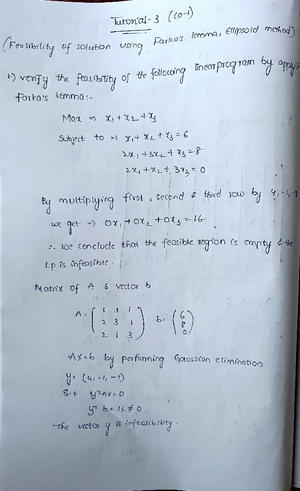 Tutorial-3 (CO-1)
(Feasibility of solution using Farka's lemma, Ellipsoid method)
1) verify the feasibility of the following linear program by apply
Farka's lemma:-
Max => x1+x2+x3
Subject to => x1+x2+x3=6
2x1+3x2+x3=8
2x1+x2+3x3=0
By multiplying first, second & third row by 4,-1,-1
we get => 0x1+0x2+0x3=16.
∴ we conclude that the feasible region is empty & the
Lp is infeasible.
Matrix of A & vector b
A: [1 1 1
2 3 1
2 1 3] b: (6
8
0)
Ax=b by performing Gaussian elimination
y= (4,-1,-1)
S.t yᵀAx=0
yᵀb=16≠0
The vector y is infeasibility.